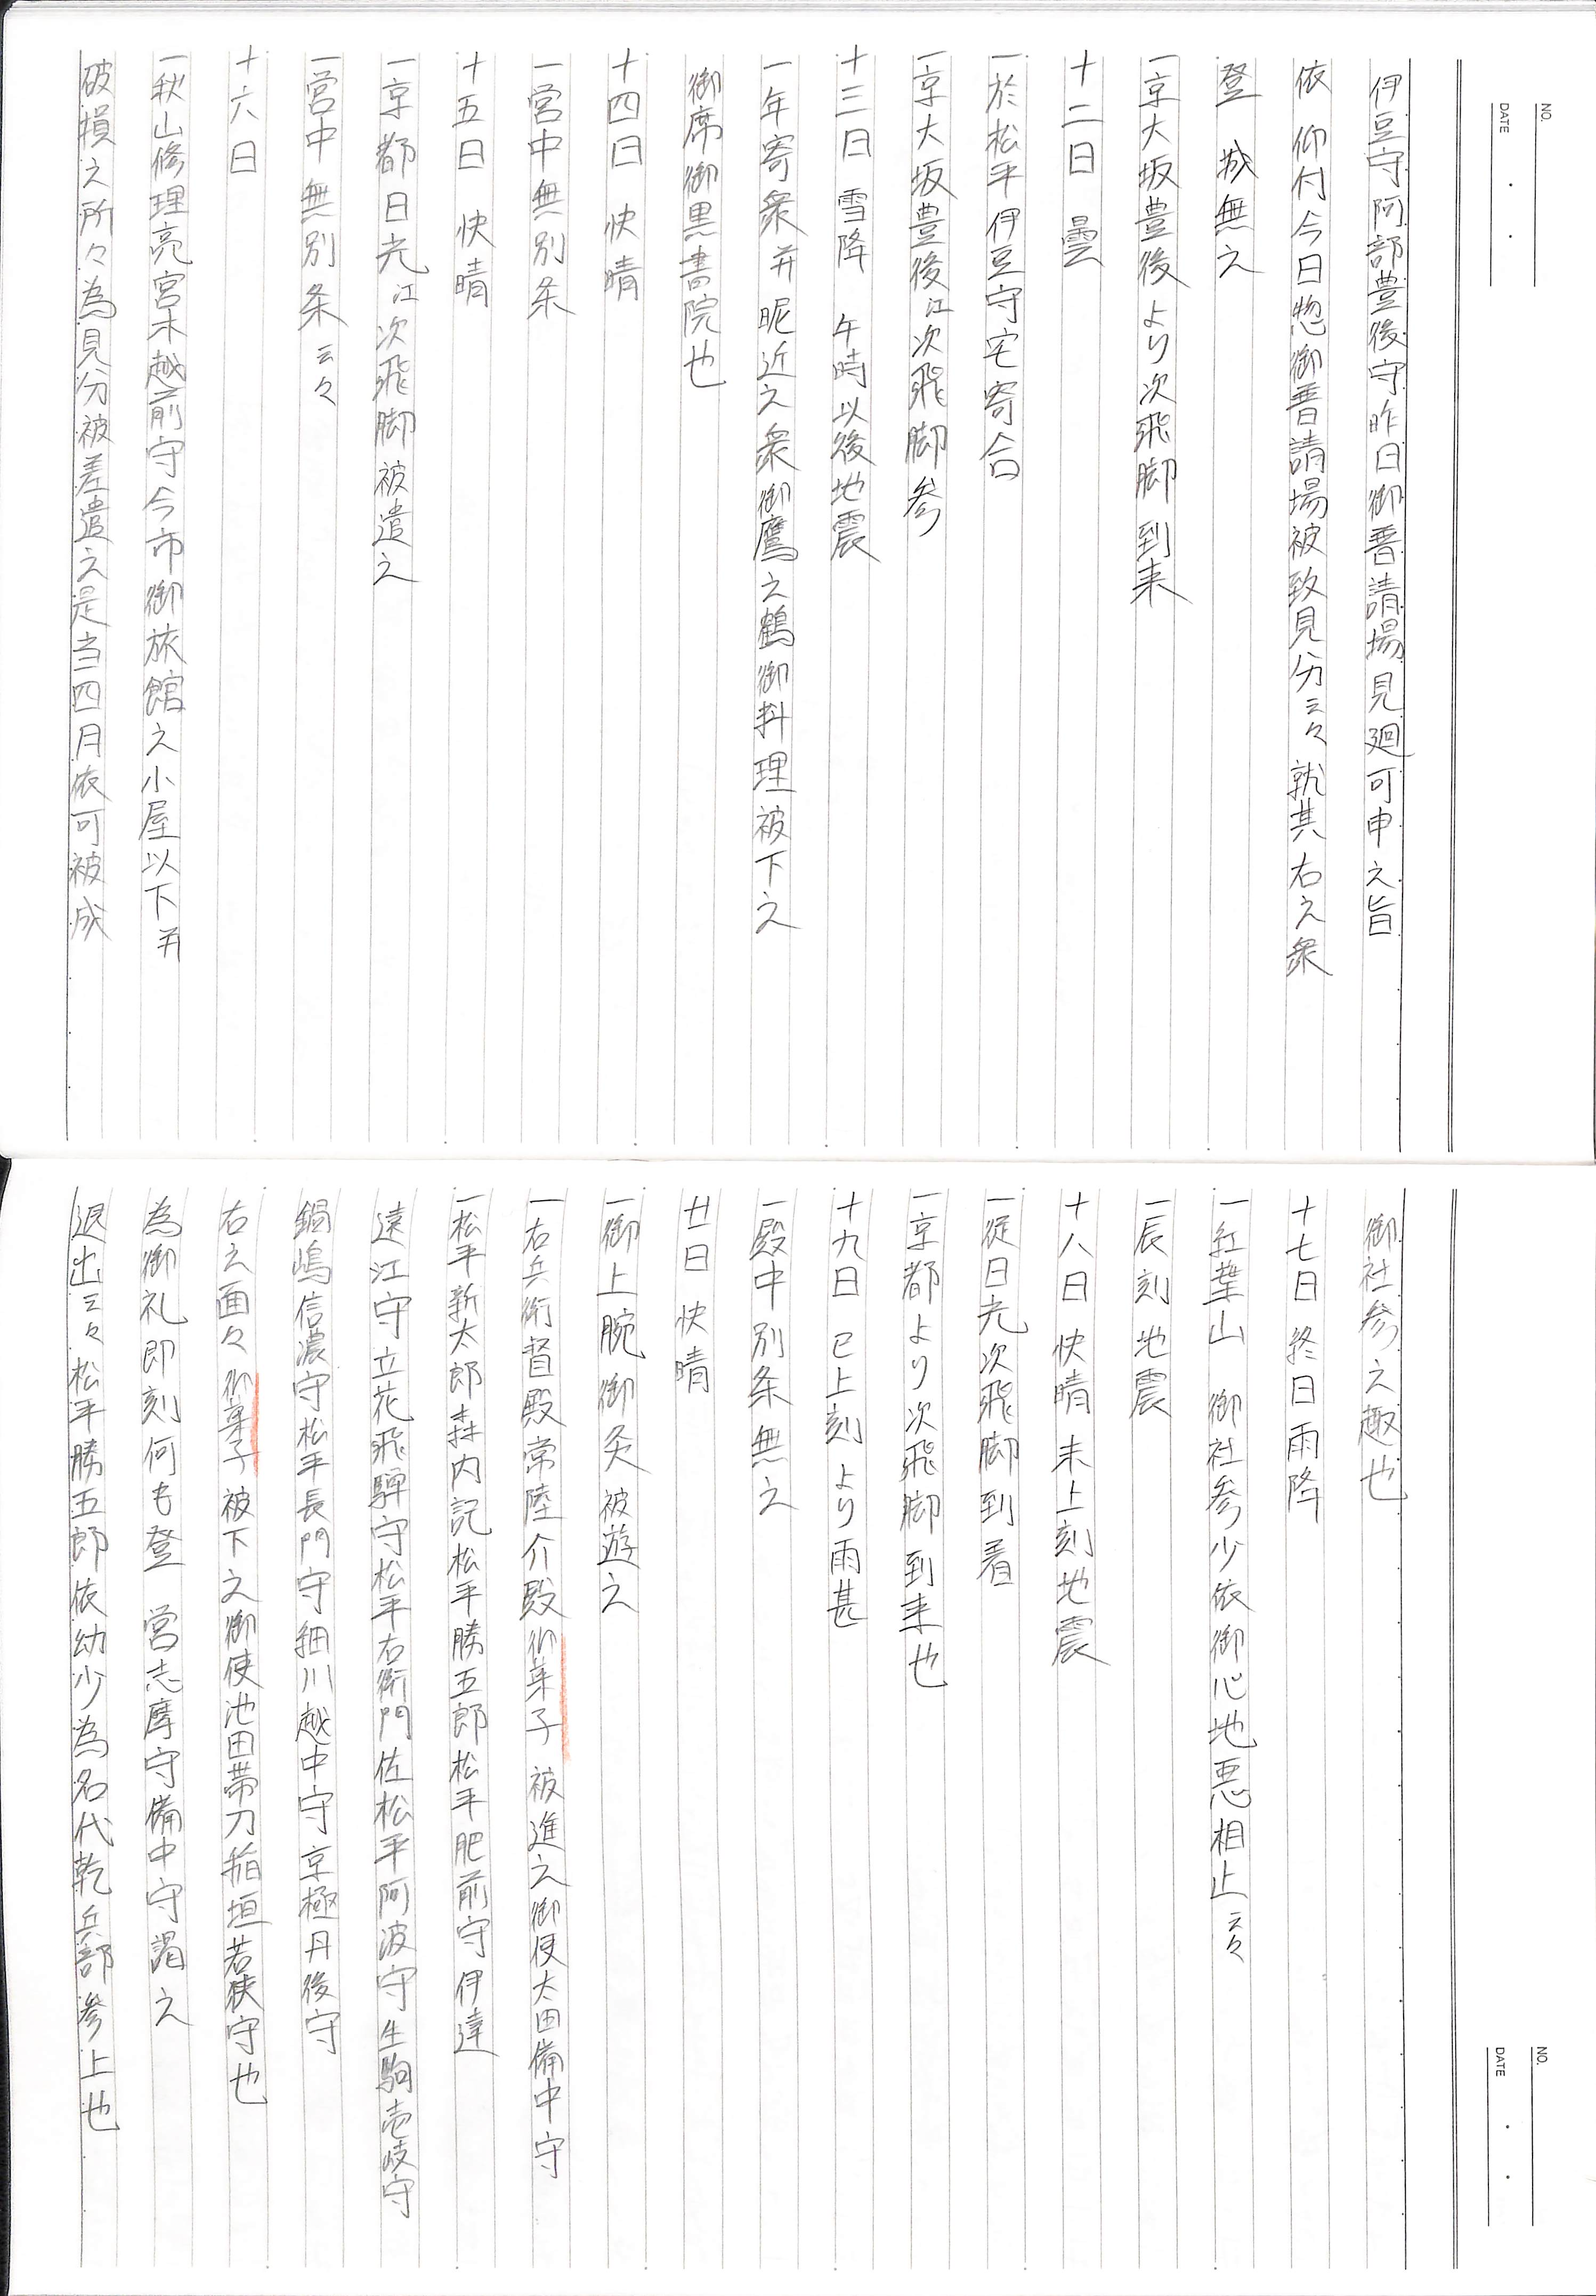 NO.
DATE
伊豆守阿部豊後守昨日御普請場見廻可申之旨
依 仰付今日惣御普請場被致見分云々就其右之衆
登 城無之
一京大坂豊後より次飛脚到来
十二日 曇
一於松平伊豆守宅寄合
一京大坂豊後江次飛脚参
十三日 雪降 午時以後地震
一年寄衆并昵近之衆御鷹之鶴御料理被下之
御席御黒書院也
十四日 快晴
一営中無別条
十五日 快晴
一京都日光江次飛脚被遣之
一営中無別条云々
十六日
一秋山修理亮宮木越前守今市御旅館之小屋以下并
破損之所々為見分被差遣之是当四月依可被成
NO.
DATE
御社参之趣也
十七日 終日雨降
一紅葉山 御社参少依御心地悪相止云々
一辰刻地震
十八日 快晴 未上刻地震
一従日光次飛脚到着
一京都より次飛脚到来也
十九日 巳上刻より雨甚
一殿中別条無之
廿日 快晴
一御上腕御灸被遊之
一右兵衛督殿常陸介殿御菓子被進之御使太田備中守
一松平新太郎森内記松平勝五郎松平肥前守伊達
遠江守立花飛騨守松平右衛門佐松平阿波守生駒壱岐守
鍋嶋信濃守松平長門守細川越中守京極丹後守
右之面々御菓子被下之御使池田帯刀稲垣若狭守也
為御礼即刻何も登 営志摩守備中守謁之
退出云々松平勝五郎依幼少為名代乾兵部参上也